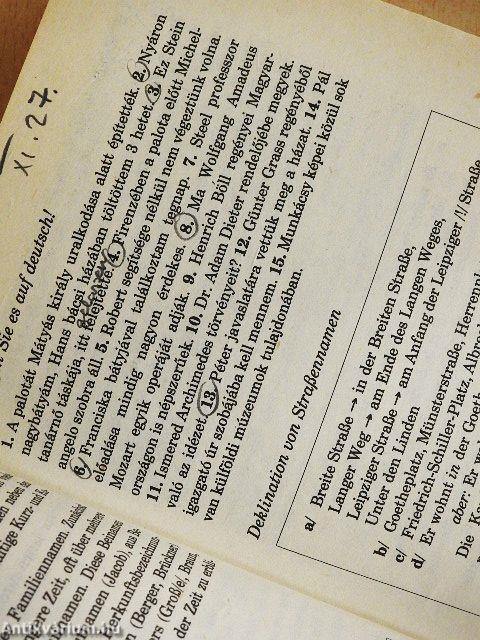 XI. 27.
Sie es auf deutsch!
1. A palotát Mátyás király uralkodása alatt építették. 2. Nyáron
nagybátyám, Hans bácsi házában töltöttem 3 hetet. 3. Ez Stein
tanárnő táskája, itt felejtette. 4. Firenzében a palota előtt Michel-
angelo szobra áll 5. Robert segítsége nélkül nem végeztünk volna.
6. Franciska bátyjával találkoztam tegnap. 7. Steel professzor
előadása mindig nagyon érdekes. 8. Ma Wolfgang Amadeus
Mozart egyik operáját adják. 9. Henrich Böll regényei Magyar-
országon is népszerűek. 10. Dr. Adam Dieter rendelőjébe megyek.
11. Ismered Archimedes törvényeit? 12. Günter Grass regényéből
való az idézet. 13. Péter javaslatára vettük meg a házat. 14. Pál
igazgató úr szobájába kell mennem. 15. Munkácsy képei közül sok
van külföldi múzeumok tulajdonában.
Deklination von Straßennamen
a/ Breite Straße → in der Breiten Straße,
Langer Weg → am Ende des Langen Weges,
Leipziger Straße → am Anfang der Leipziger /!/ Straße
Unter den Linden
b/ Goetheplatz, Münsterstraße, Herrenn
c/ Friedrich-Schiller-Platz, Albre
d/ Er wohnt in der Goeth
aber: Er w
Die Ka
Familiennamen. Zunächst
re Zeit, oft über mehrere
amen. Diese Beinamen
amen (Jacob), aus Be-
erkunftsbezeichnun
n (Berger, Brückner)
ers (Groß(e), Braun
der Zeit zu erbli
Antikvarium.hu